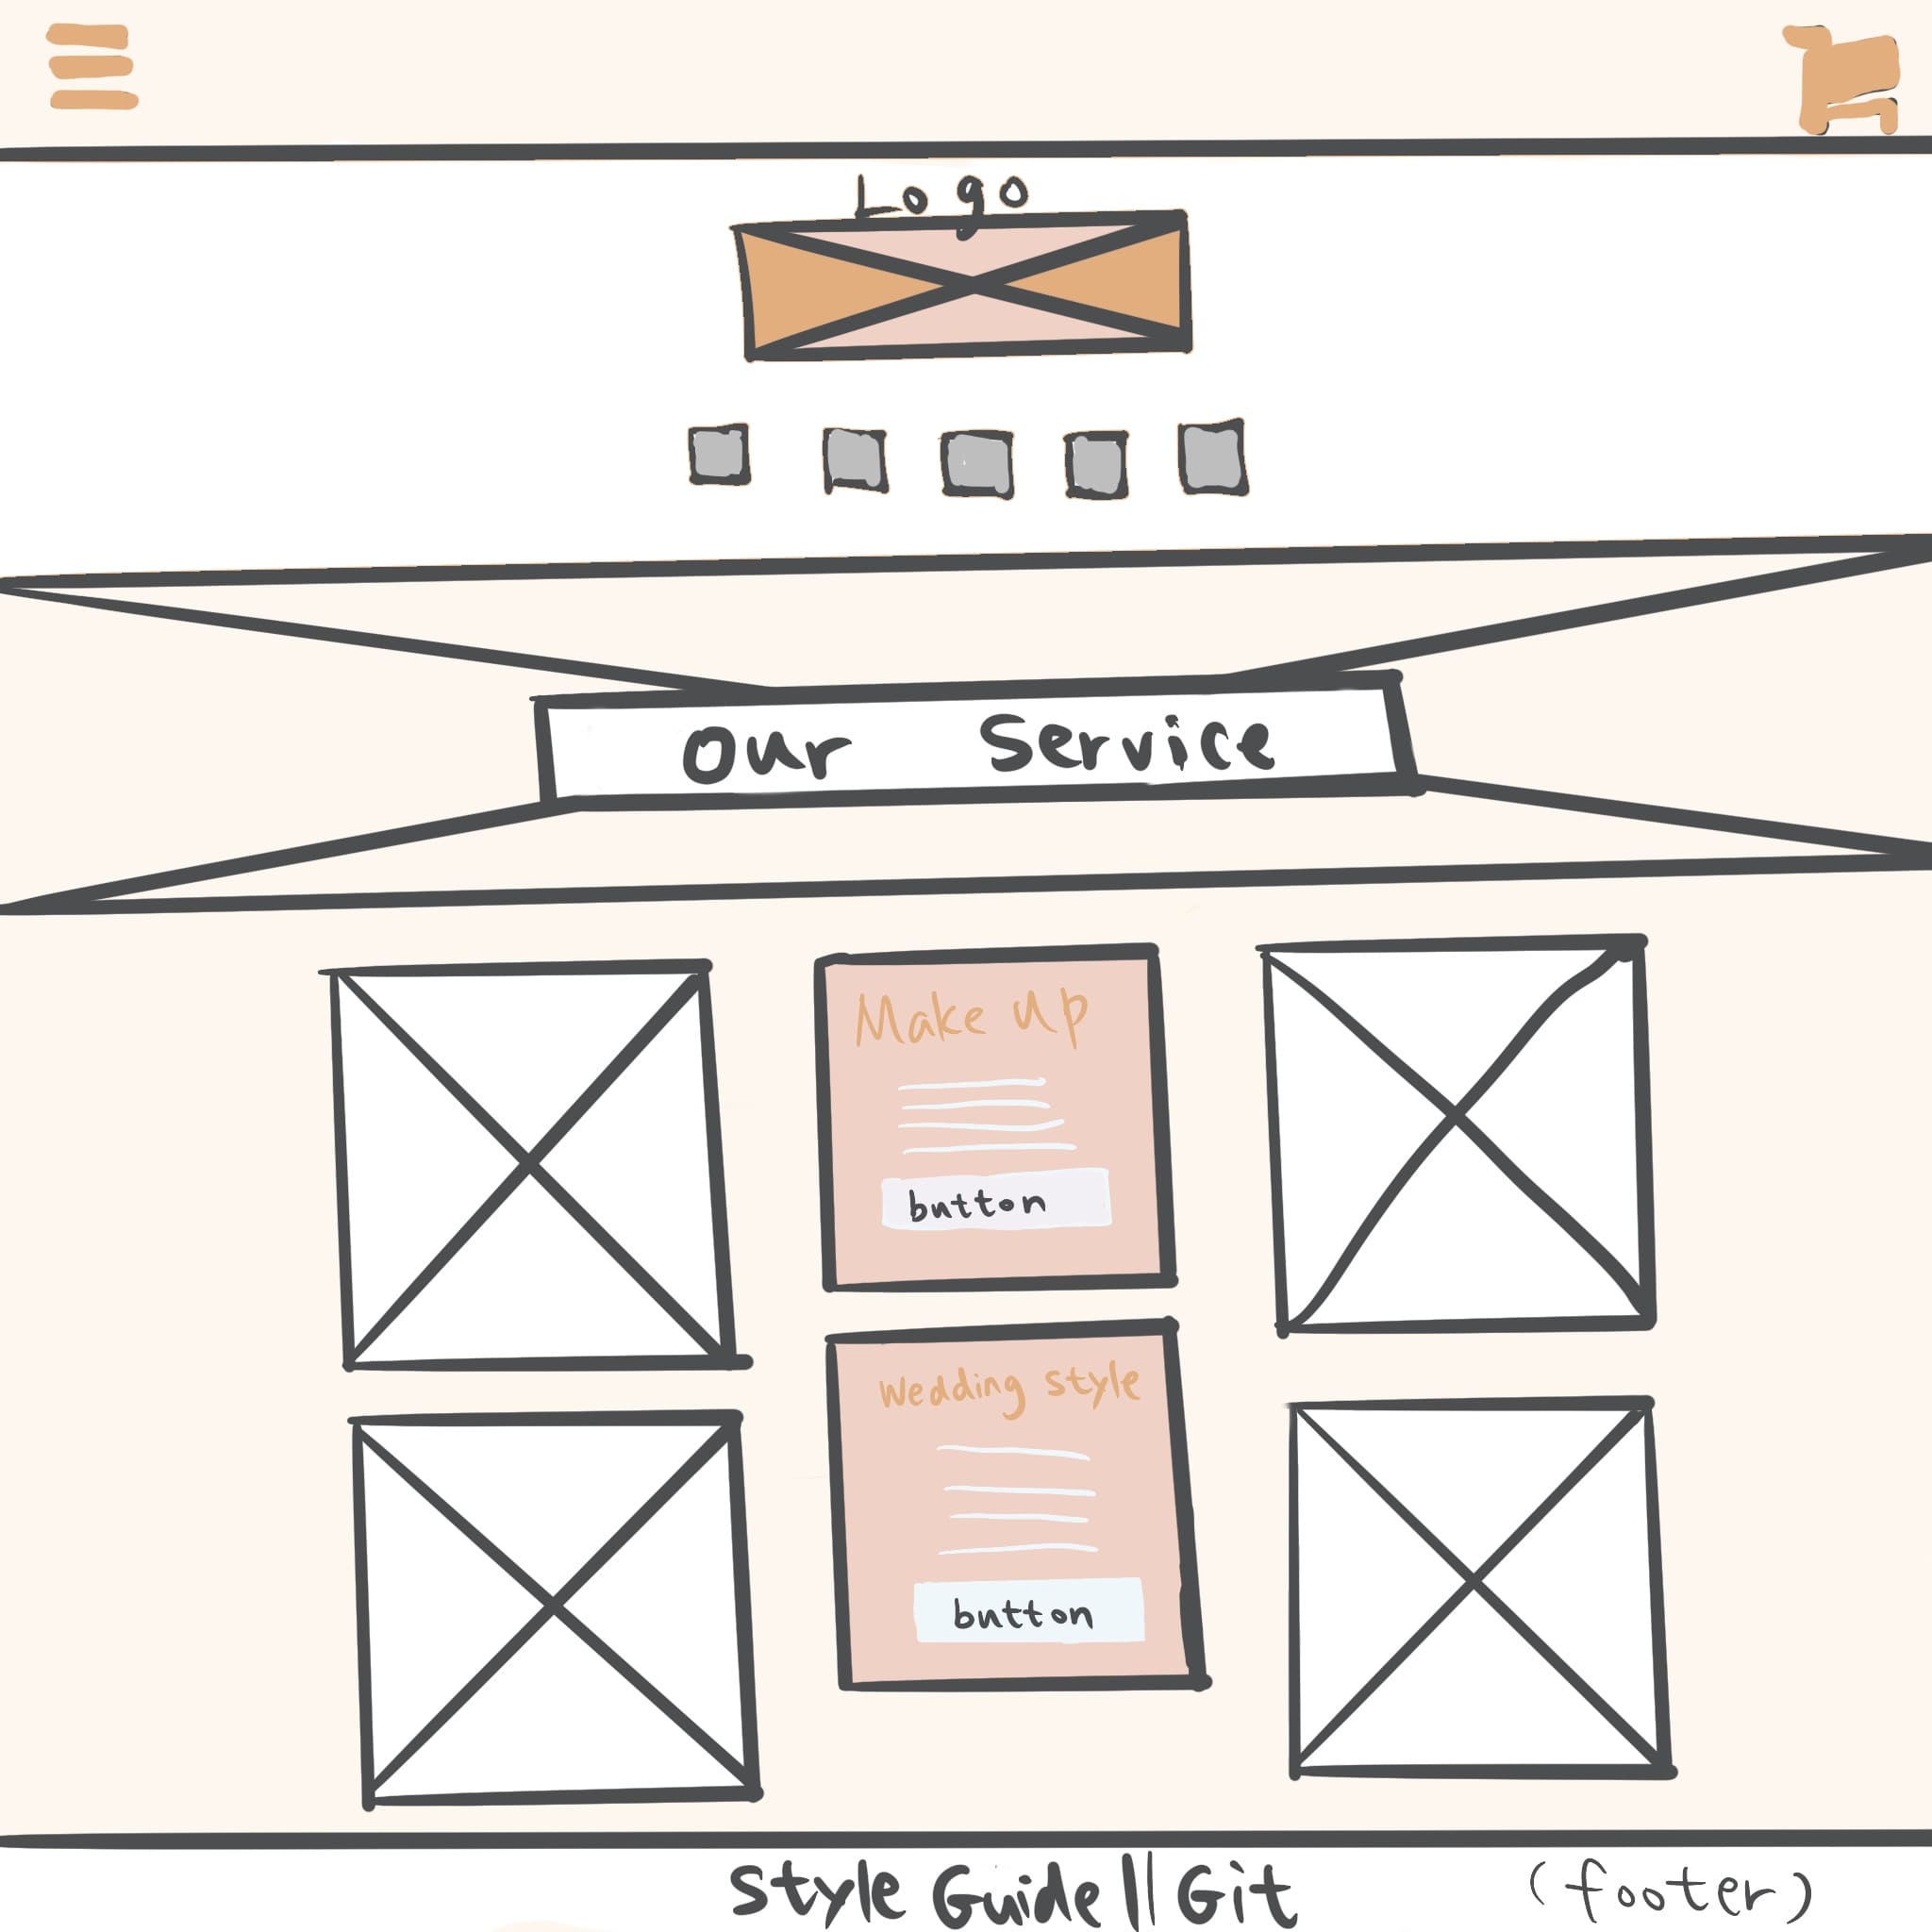 Logo
Our Service
Make Up
button
Wedding style
button
Style Guide || Git (footer)